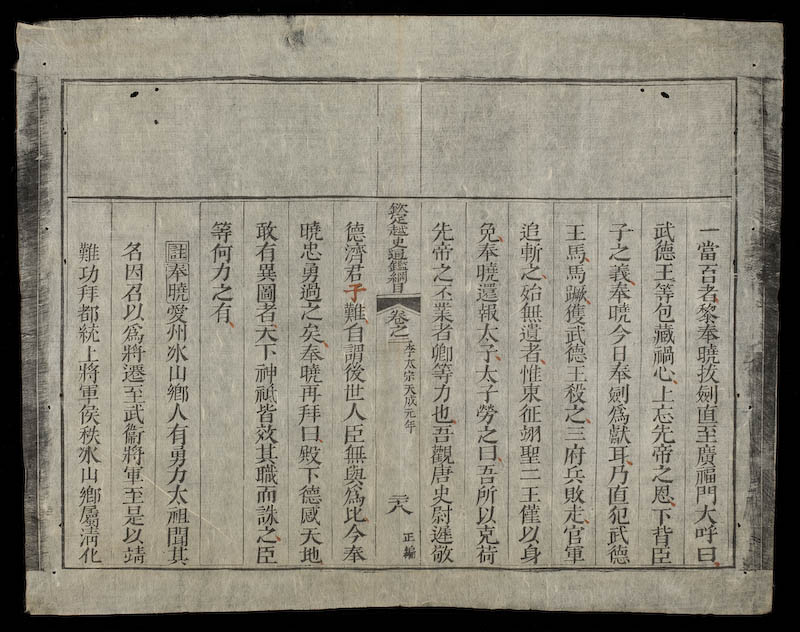 一當百者黎奉曉拔劍直至廣福門大呼曰
武德王等包藏禍心上忘先帝之恩下背臣
子之義奉曉今日奉劍爲獻耳乃直犯武德
王馬馬蹶獲武德王殺之三府兵敗走官軍
追斬之殆無遺者惟東征翊聖二王僅以身
免奉曉還報太子太子勞之曰吾所以克荷
先帝之丕業者卿等力也吾觀唐史尉遲敬
欽定越史通鑑綱目 卷之二 李太宗天成元年 二十八 正編
德濟君子難自謂後世人臣無與爲比今奉
曉忠勇過之矣奉曉再拜曰殿下德感天地
敢有異圖者天下神祗皆效其職而誅之臣
等何力之有
註奉曉愛州氷山鄉人有勇力太祖聞其
名因召以爲將遷至武衞將軍至是以靖
難功拜都統上將軍侯秩氷山鄉屬清化